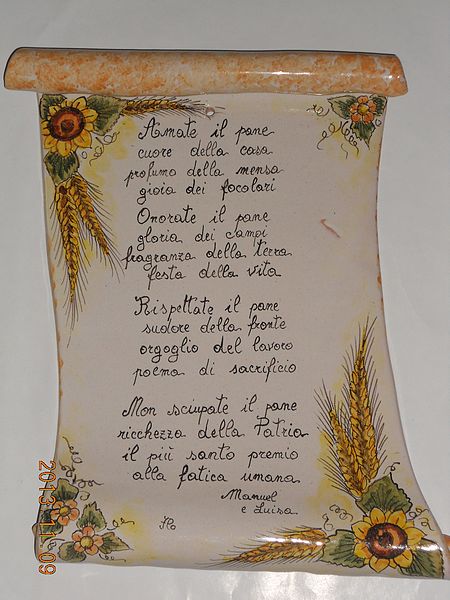 Amate il pane
cuore della casa
profumo della mensa
gioia dei focolari
Onorate il pane
gloria dei campi
fragranza della terra
festa della vita
Rispettate il pane
sudore della fronte
orgoglio del lavoro
poema di sacrificio
Non sciupate il pane
ricchezza della Patria
il più santo premio
alla fatica umana
Manuel
e Luisa
2013 11 09